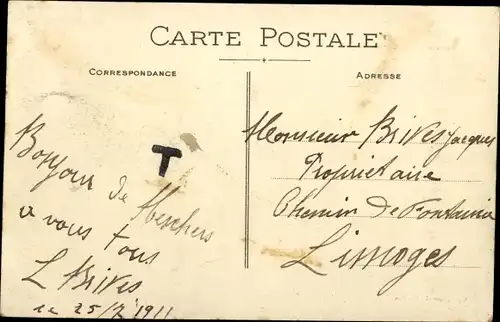 CARTE POSTALE
CORRESPONDANCE
ADRESSE
Bonjour de Meschers
a vous tous
L Brives
le 25/7 1911
T
Monsieur Brives Jacques
Propriétaire
Chemin de Fontaine
Limoges